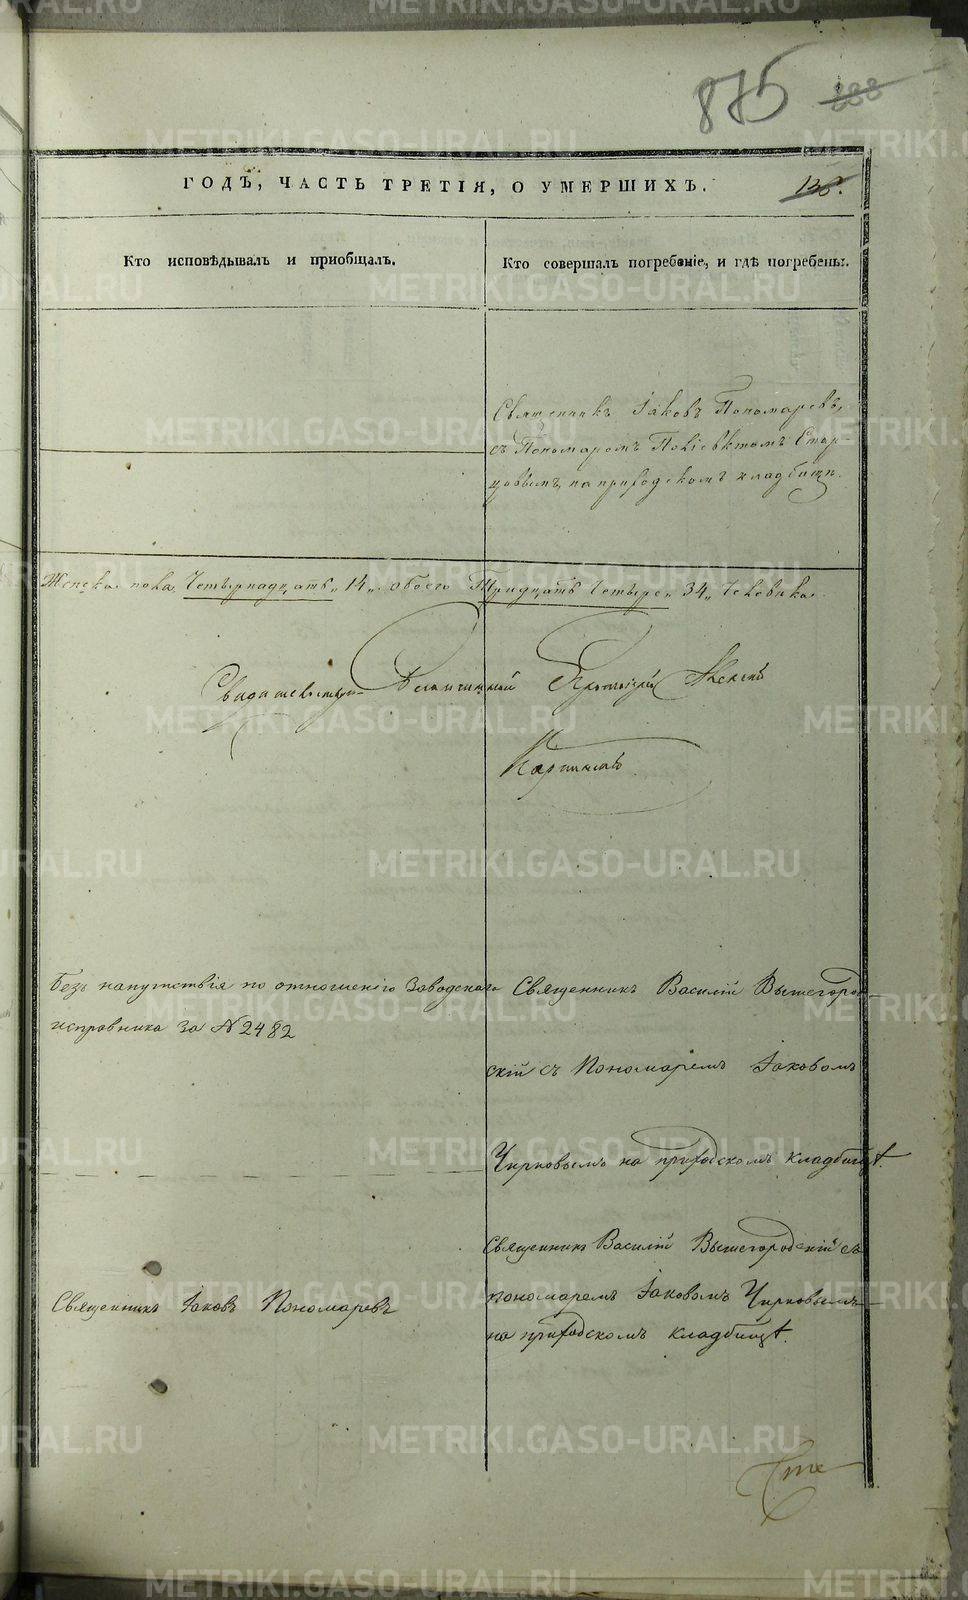 875 888
ГОДЪ, ЧАСТЬ ТРЕТІЯ, О УМЕРШИХЪ.
Кто исповѣдывалъ и пріобщалъ.
Кто совершалъ погребеніе, и гдѣ погребены.
Священникъ Іаковъ Пономаревъ,
съ Пономаремъ Стар-
цовымъ, на приходскомъ кладбищѣ.
Женска пола, Четырнадцать „14„ обоего Тридцать Четыре „34„ Человѣка.
Благочинный Протоіерей Алексій
Карпинскій
Безъ напутствія по отношенію Заводскаго
исправника за №2482
Священникъ Василій Вышегород-
скій съ Пономаремъ Іаковомъ
Чирковымъ на приходскомъ кладбищѣ.
Священникъ Іаковъ Пономаревъ
Священникъ Василій Вышегородскій съ
пономаремъ Іаковомъ Чирковымъ
на приходскомъ кладбищѣ.
METRIKI.GASO-URAL.RU